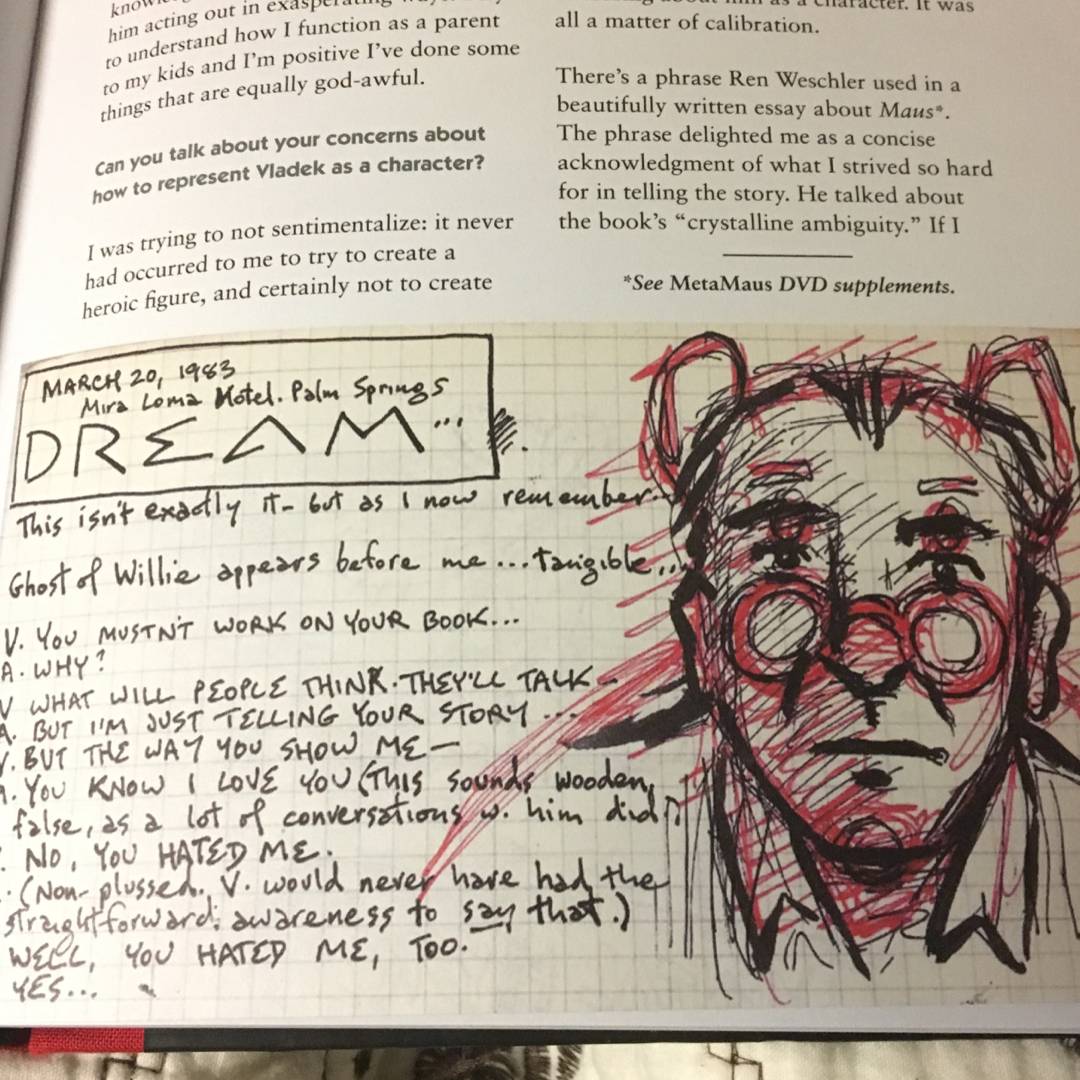 him acting out in
to understand how I function as a parent
to my kids and I'm positive I've done some
things that are equally god-awful.
Can you talk about your concerns about
how to represent Vladek as a character?
I was trying to not sentimentalize: it never
had occurred to me to try to create a
heroic figure, and certainly not to create
him as a character. It was
all a matter of calibration.
There's a phrase Ren Weschler used in a
beautifully written essay about Maus*.
The phrase delighted me as a concise
acknowledgment of what I strived so hard
for in telling the story. He talked about
the book's “crystalline ambiguity.” If I
*See MetaMaus DVD supplements.
MARCH 20, 1983
Mira Loma Motel. Palm Springs
DREAM...
This isn't exactly it- but as I now remember..
Ghost of Willie appears before me ... tangible...
V. YOU MUSTN'T WORK ON YOUR BOOK...
A. WHY?
V WHAT WILL PEOPLE THINK. THEY'LL TALK-
A. BUT I'M JUST TELLING YOUR STORY ...
V. BUT THE WAY YOU SHOW ME—
A. YOU KNOW I LOVE YOU (This sounds wooden,
false, as a lot of conversations w. him did.)
: NO, YOU HATED ME.
. (Non-plussed. V. would never have had the
straightforward; awareness to say that.)
WELL, YOU HATED ME, TOO.
YES...